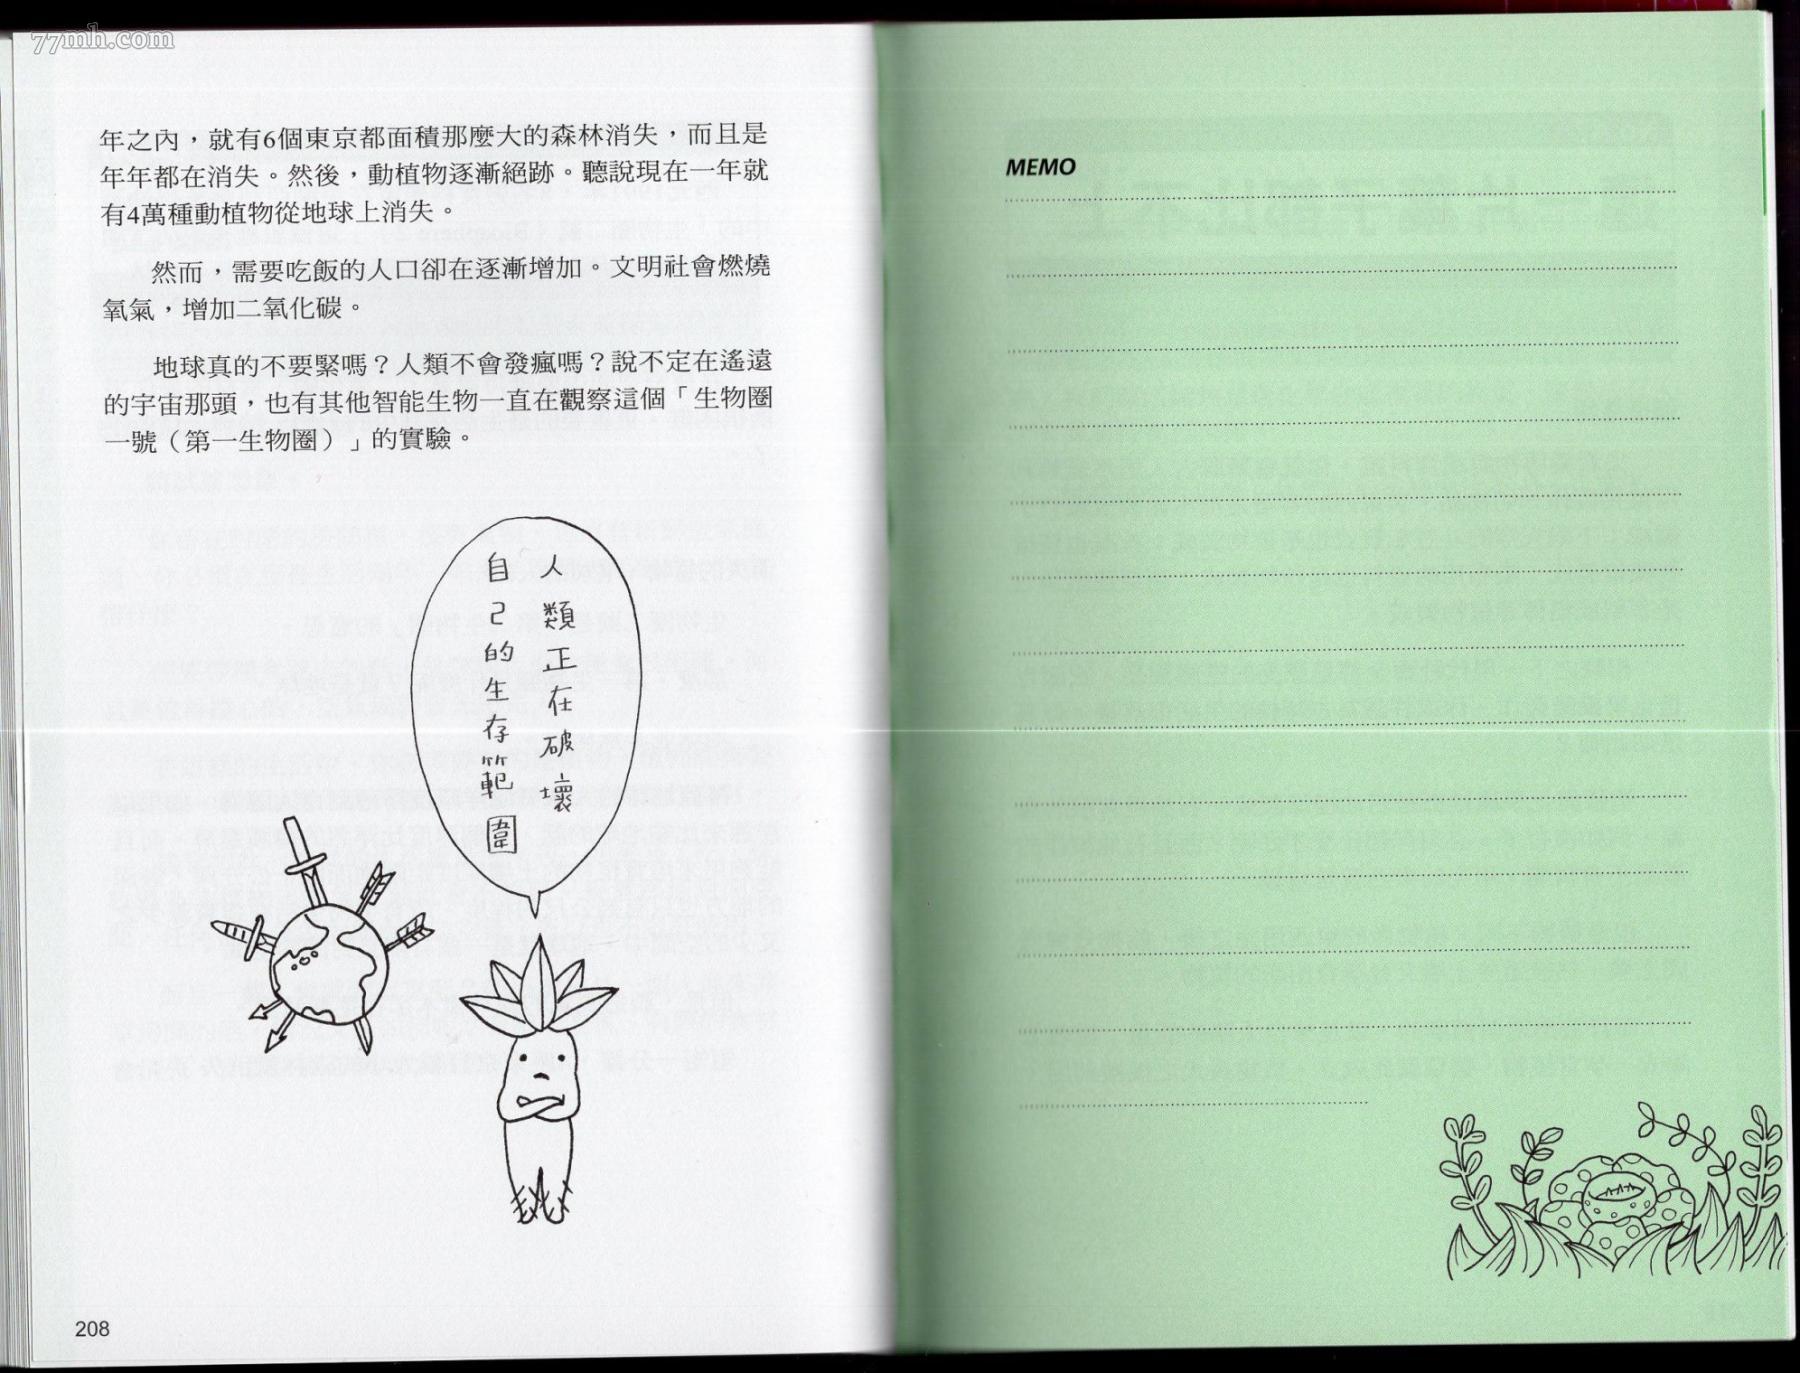 77mh.com
年之內，就有6個東京都面積那麼大的森林消失，而且是
年年都在消失。然後，動植物逐漸絕跡。聽說現在一年就
有4萬種動植物從地球上消失。
然而，需要吃飯的人口卻在逐漸增加。文明社會燃燒
氧氣，增加二氧化碳。
地球真的不要緊嗎？人類不會發瘋嗎？說不定在遙遠
的宇宙那頭，也有其他智能生物一直在觀察這個「生物圈
一號（第一生物圈）」的實驗。
人類正在破壞
自己的生存範圍
208
MEMO